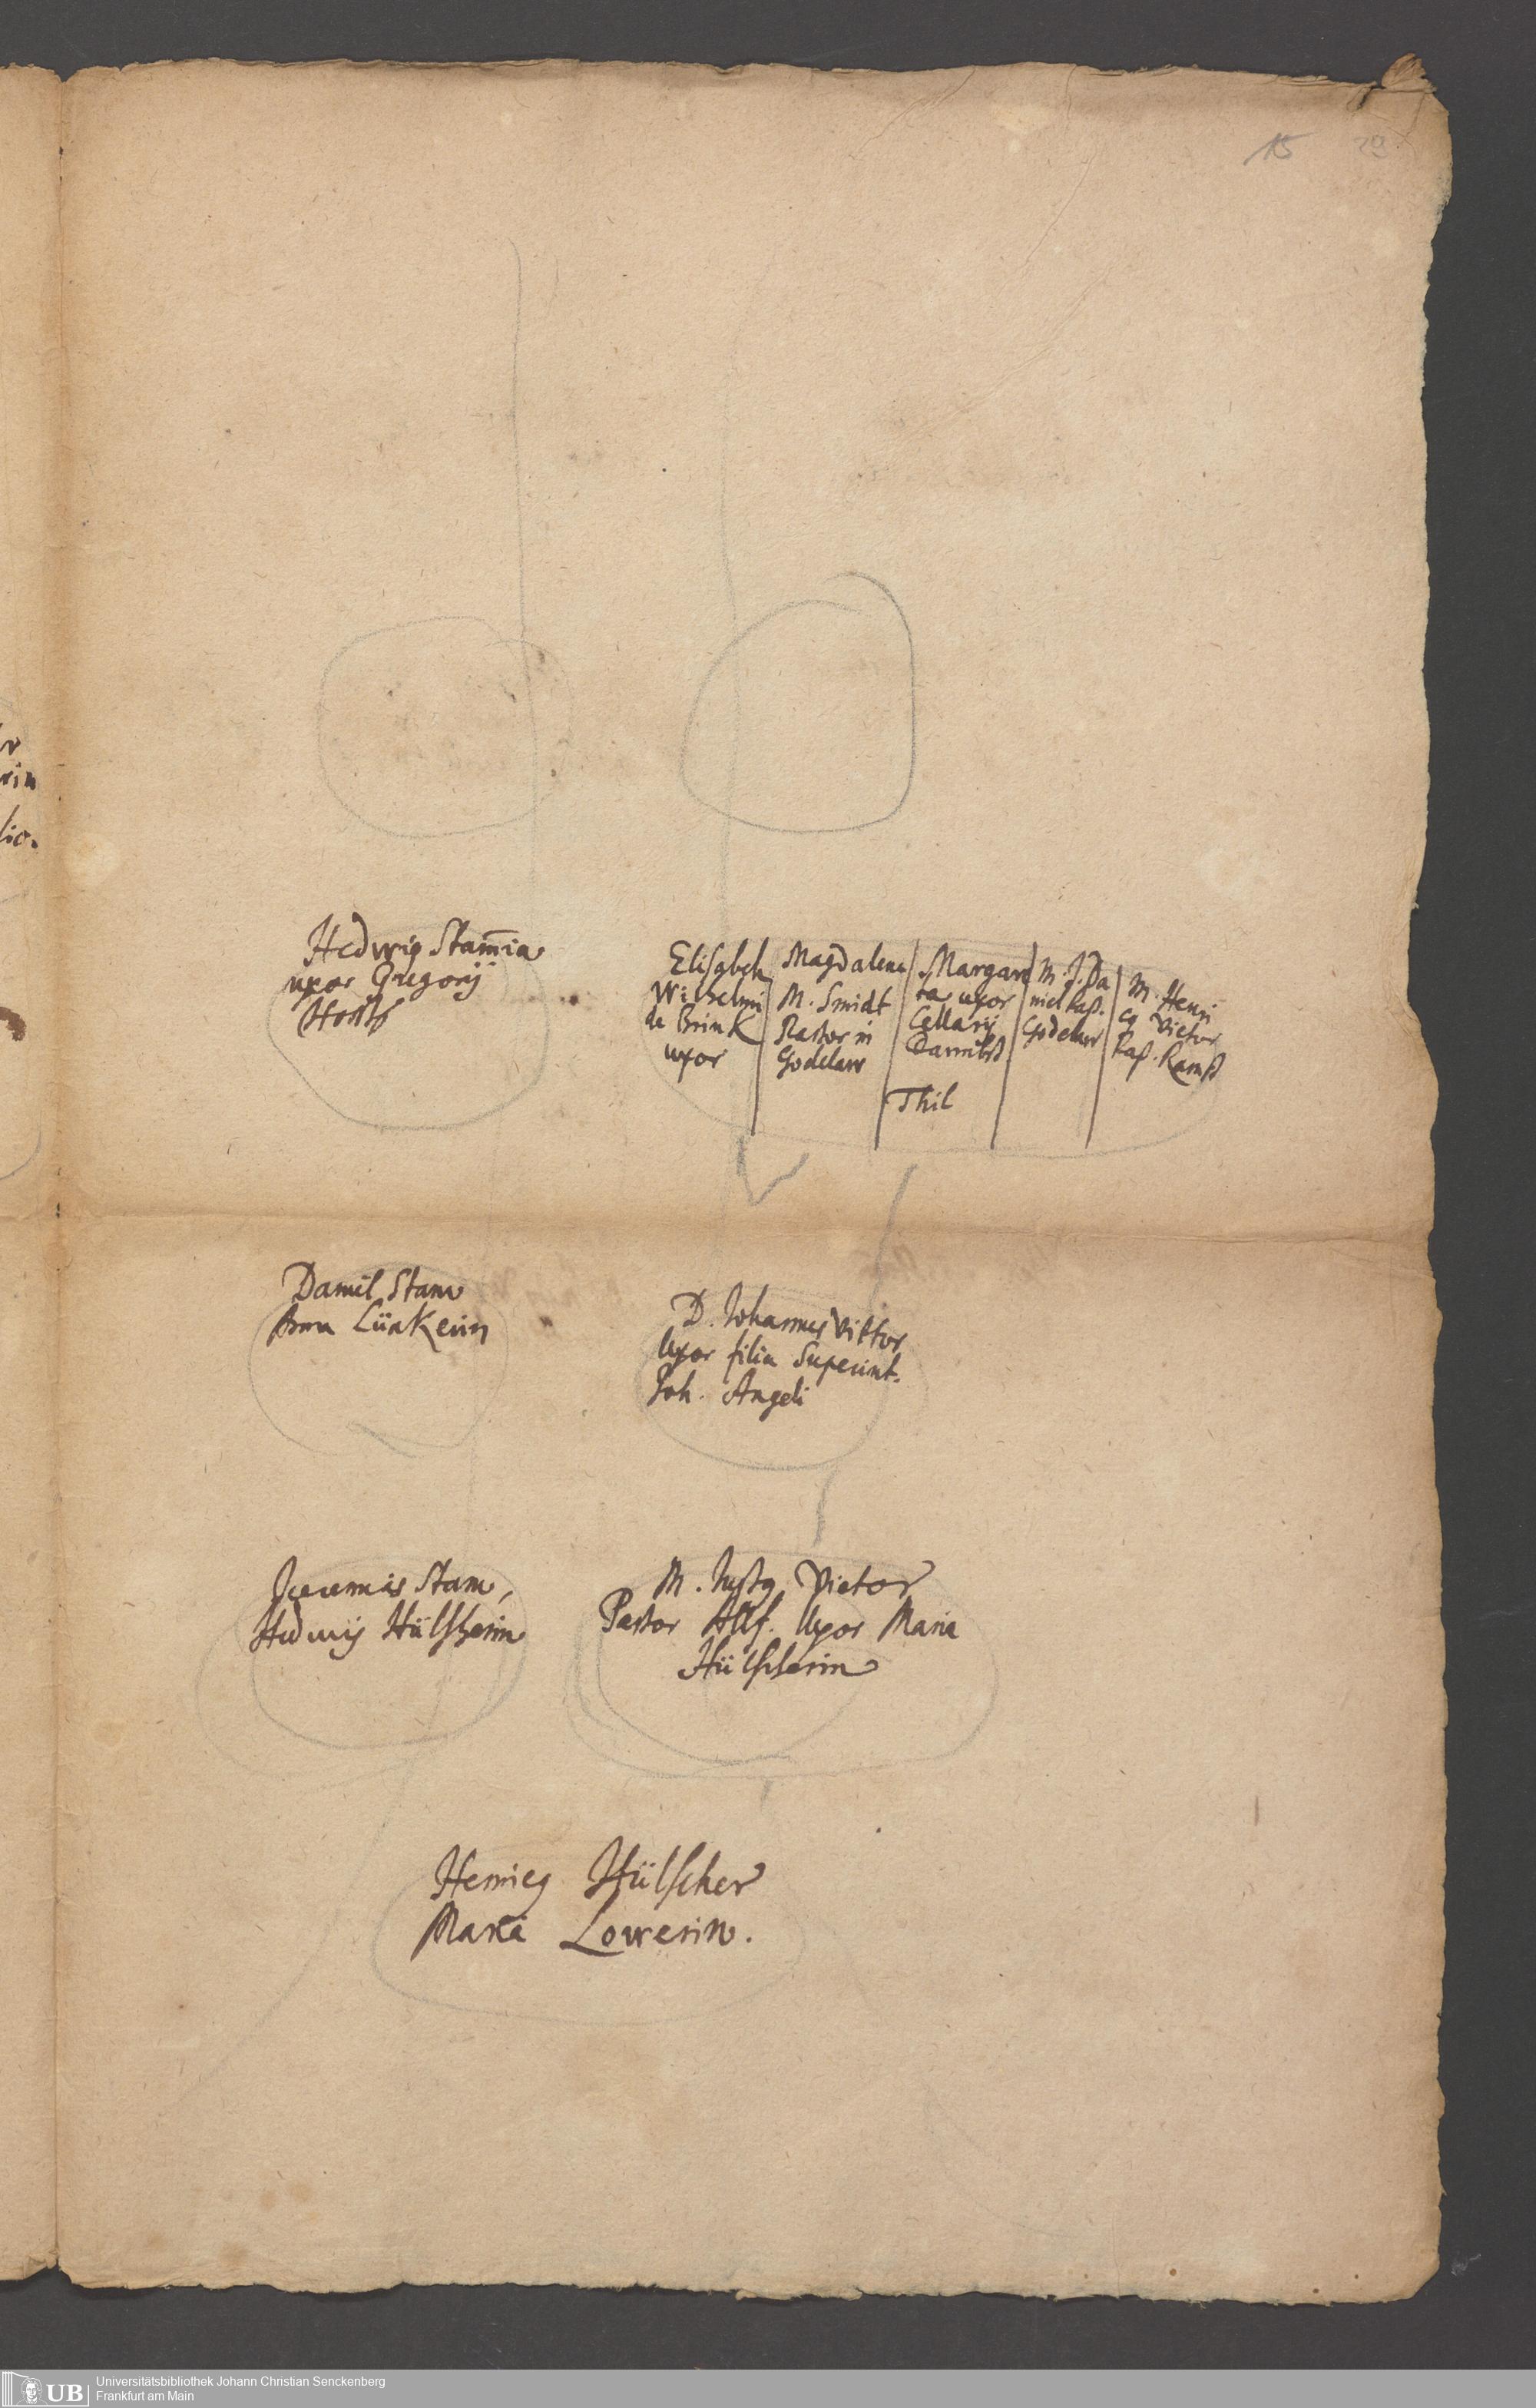 15 29
rin
lio.
Hedwig Stam̄ia
uxor Gregorij
Horsts
Elisabeh
Wilhelmi
de Brink
uxor
Magdalena
M. Smidt
Pastor in
Godelaw
Margare
ta uxor
Cellarij
Darmbst.
Thil
M. J. Da
niel Paß.
Godelaw
M. Henri
cq Vietor
Paß. Ramß
Daniel Stam
Anna Lünkerin
D. Johannes Viktor
Uxor filia Superint.
Joh. Angeli
Jeremias Stam,
Hedwig Hülsherin
M. Justq Vietor
Pastor Allf. Uxor Maria
Hülscherin
Henricq Hülscher
Maria Lowerin.
UB Universitätsbibliothek Johann Christian Senckenberg
Frankfurt am Main